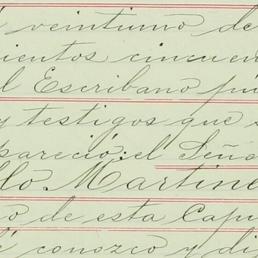 veintiuno de
ientos cincuen
l Escribano pú
y testigos que s
pareció: el Seño
lo Martine
o de esta Capi
conozco y di